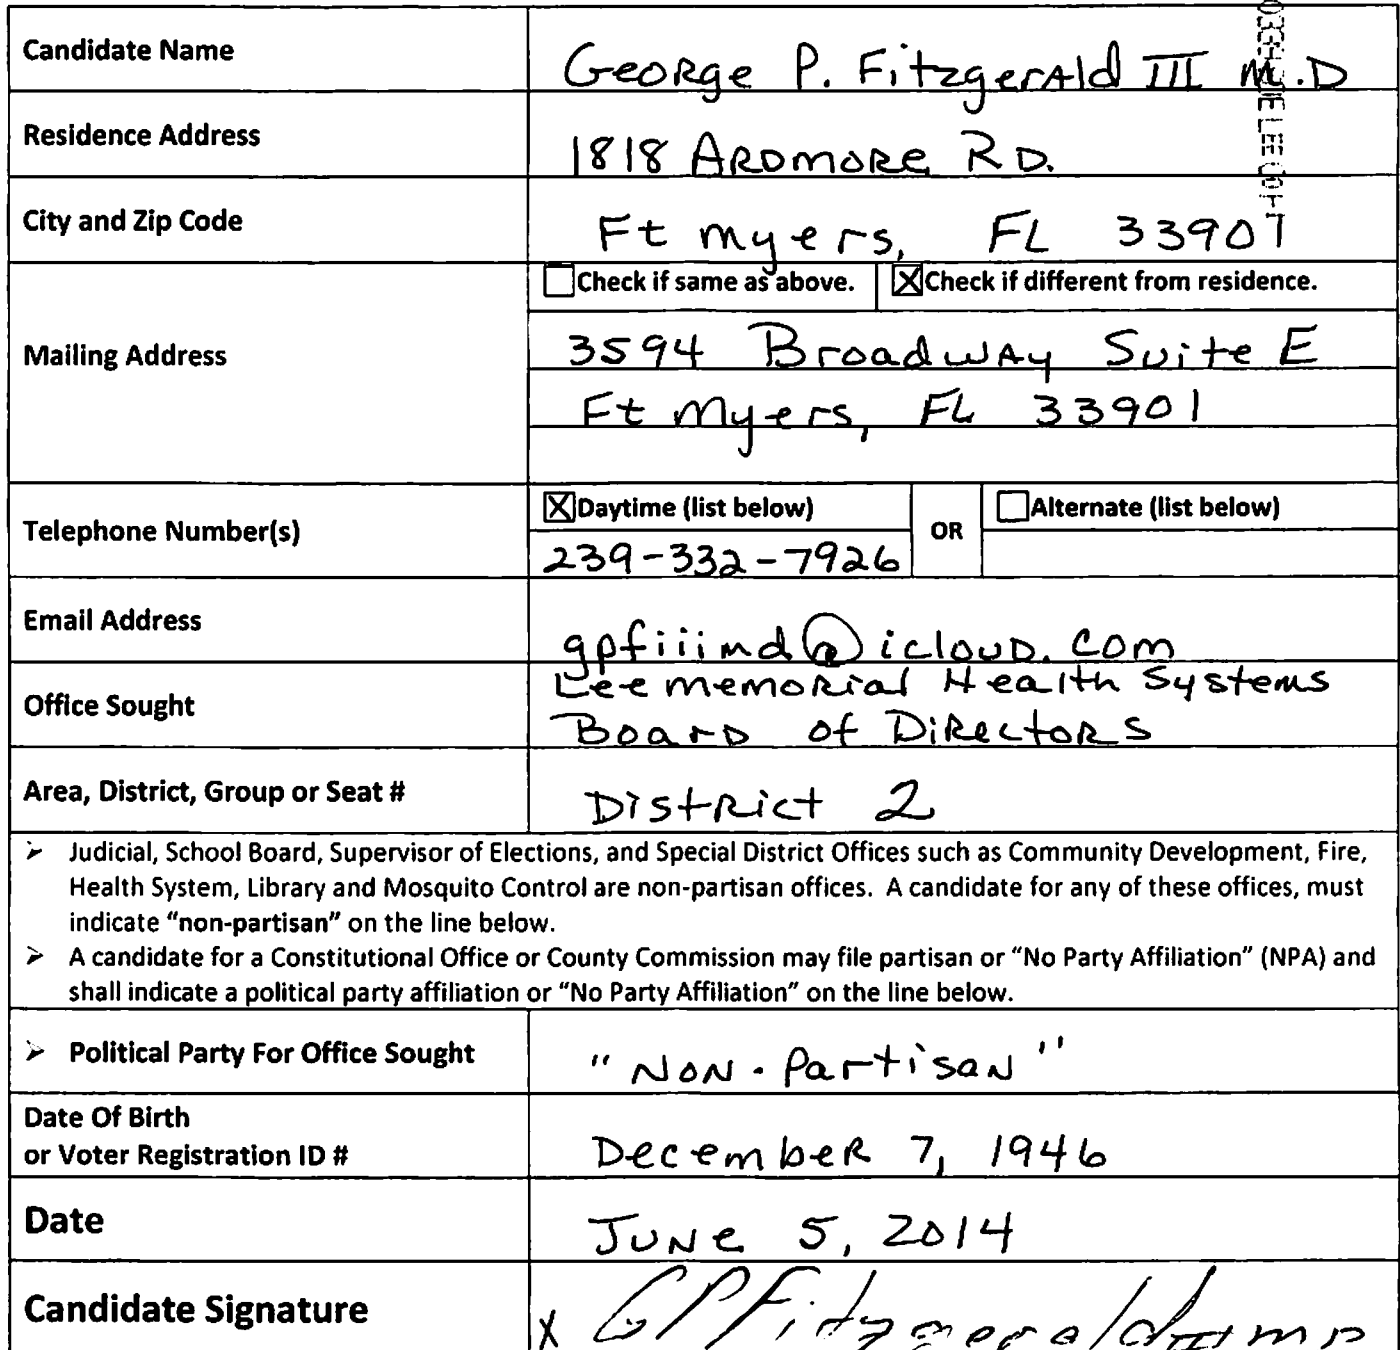 Candidate Name
George P. Fitzgerald III M.D
Residence Address
1818 Ardmore Rd.
City and Zip Code
Ft Myers, FL 33907
Check if same as above.
Check if different from residence.
Mailing Address
3594 Broadway Suite E
Ft Myers, FL 33901
Telephone Number(s)
Daytime (list below)
OR
Alternate (list below)
239-332-7926
Email Address
gpfiiimd@icloud.com
Office Sought
Lee Memorial Health Systems
Board of Directors
Area, District, Group or Seat #
District 2
➢ Judicial, School Board, Supervisor of Elections, and Special District Offices such as Community Development, Fire,
Health System, Library and Mosquito Control are non-partisan offices. A candidate for any of these offices, must
indicate "non-partisan" on the line below.
➢ A candidate for a Constitutional Office or County Commission may file partisan or "No Party Affiliation" (NPA) and
shall indicate a political party affiliation or "No Party Affiliation" on the line below.
➢ Political Party For Office Sought
"Non-Partisan"
Date Of Birth
or Voter Registration ID #
December 7, 1946
Date
June 5, 2014
Candidate Signature
X GPFitzgerald III MD